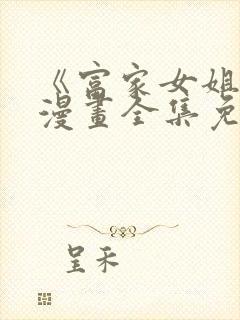 《富家女姐
漫畫全集免
呈禾